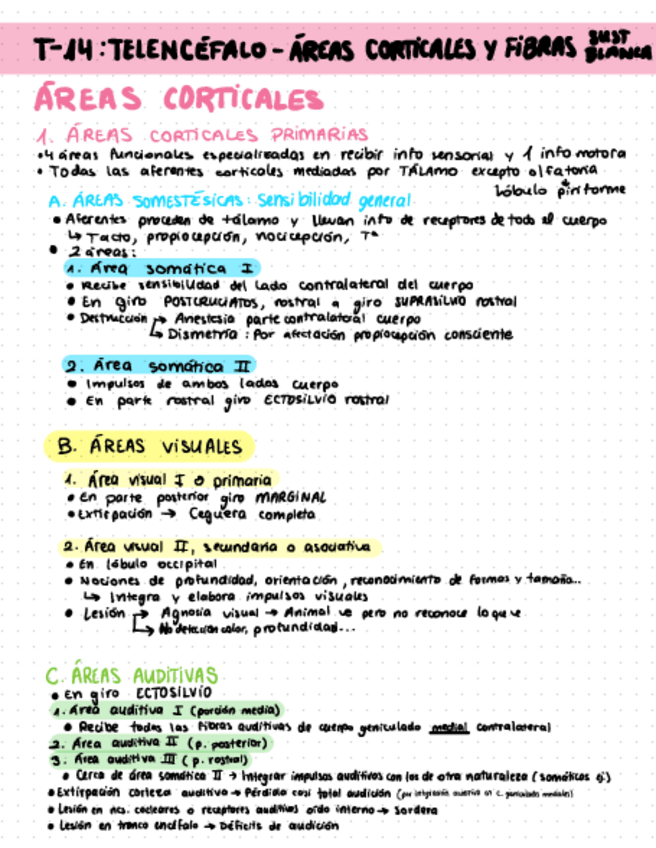 T-14: TELENCÉFALO - ÁREAS CORTICALES Y FIBRAS SUST BLANCA
ÁREAS CORTICALES
1. ÁREAS CORTICALES PRIMARIAS
• 4 áreas funcionales especializadas en recibir info sensorial y 1 info motora
• Todas las aferentes corticales mediadas por TÁLAMO excepto olfatoria
lóbulo piriforme
A. ÁREAS SOMESTÉSICAS: Sensibilidad general
• Aferentes proceden de tálamo y llevan info de receptores de todo el cuerpo
↳ Tacto, propiocepción, nocicepción, Tª
• 2 áreas:
1. Área somática I
• Recibe sensibilidad del lado contralateral del cuerpo
• En giro POSTCRUCIATOS, rostral a giro SUPRASILVIO rostral
• Destrucción → Anestesia parte contralateral cuerpo
↳ Dismetría: Por afectación propiocepción consciente
2. Área somática II
• Impulsos de ambos lados cuerpo
• En parte rostral giro ECTOSILVIO rostral
B. ÁREAS VISUALES
1. Área visual I o primaria
• En parte posterior giro MARGINAL
• Extirpación → Ceguera completa
2. Área visual II, secundaria o asociativa
• En lóbulo occipital
• Nociones de profundidad, orientación, reconocimiento de formas y tamaño...
↳ Integra y elabora impulsos visuales
• Lesión → Agnosia visual → Animal ve pero no reconoce lo que ve
↳ No detección color, profundidad...
C. ÁREAS AUDITIVAS
• En giro ECTOSILVIO
1. Área auditiva I (porción media)
• Recibe todas las fibras auditivas de cuerpo geniculado medial contralateral
2. Área auditiva II (p. posterior)
3. Área auditiva III (p. rostral)
• Cerca de área somática II → Integrar impulsos auditivos con los de otra naturaleza (somáticos
• Extirpación corteza auditiva → Pérdida casi total audición (por integración
• Lesión en ncs. cocleares o receptores auditivos oído interno → Sordera
• Lesión en tronco encéfalo → Déficits de audición